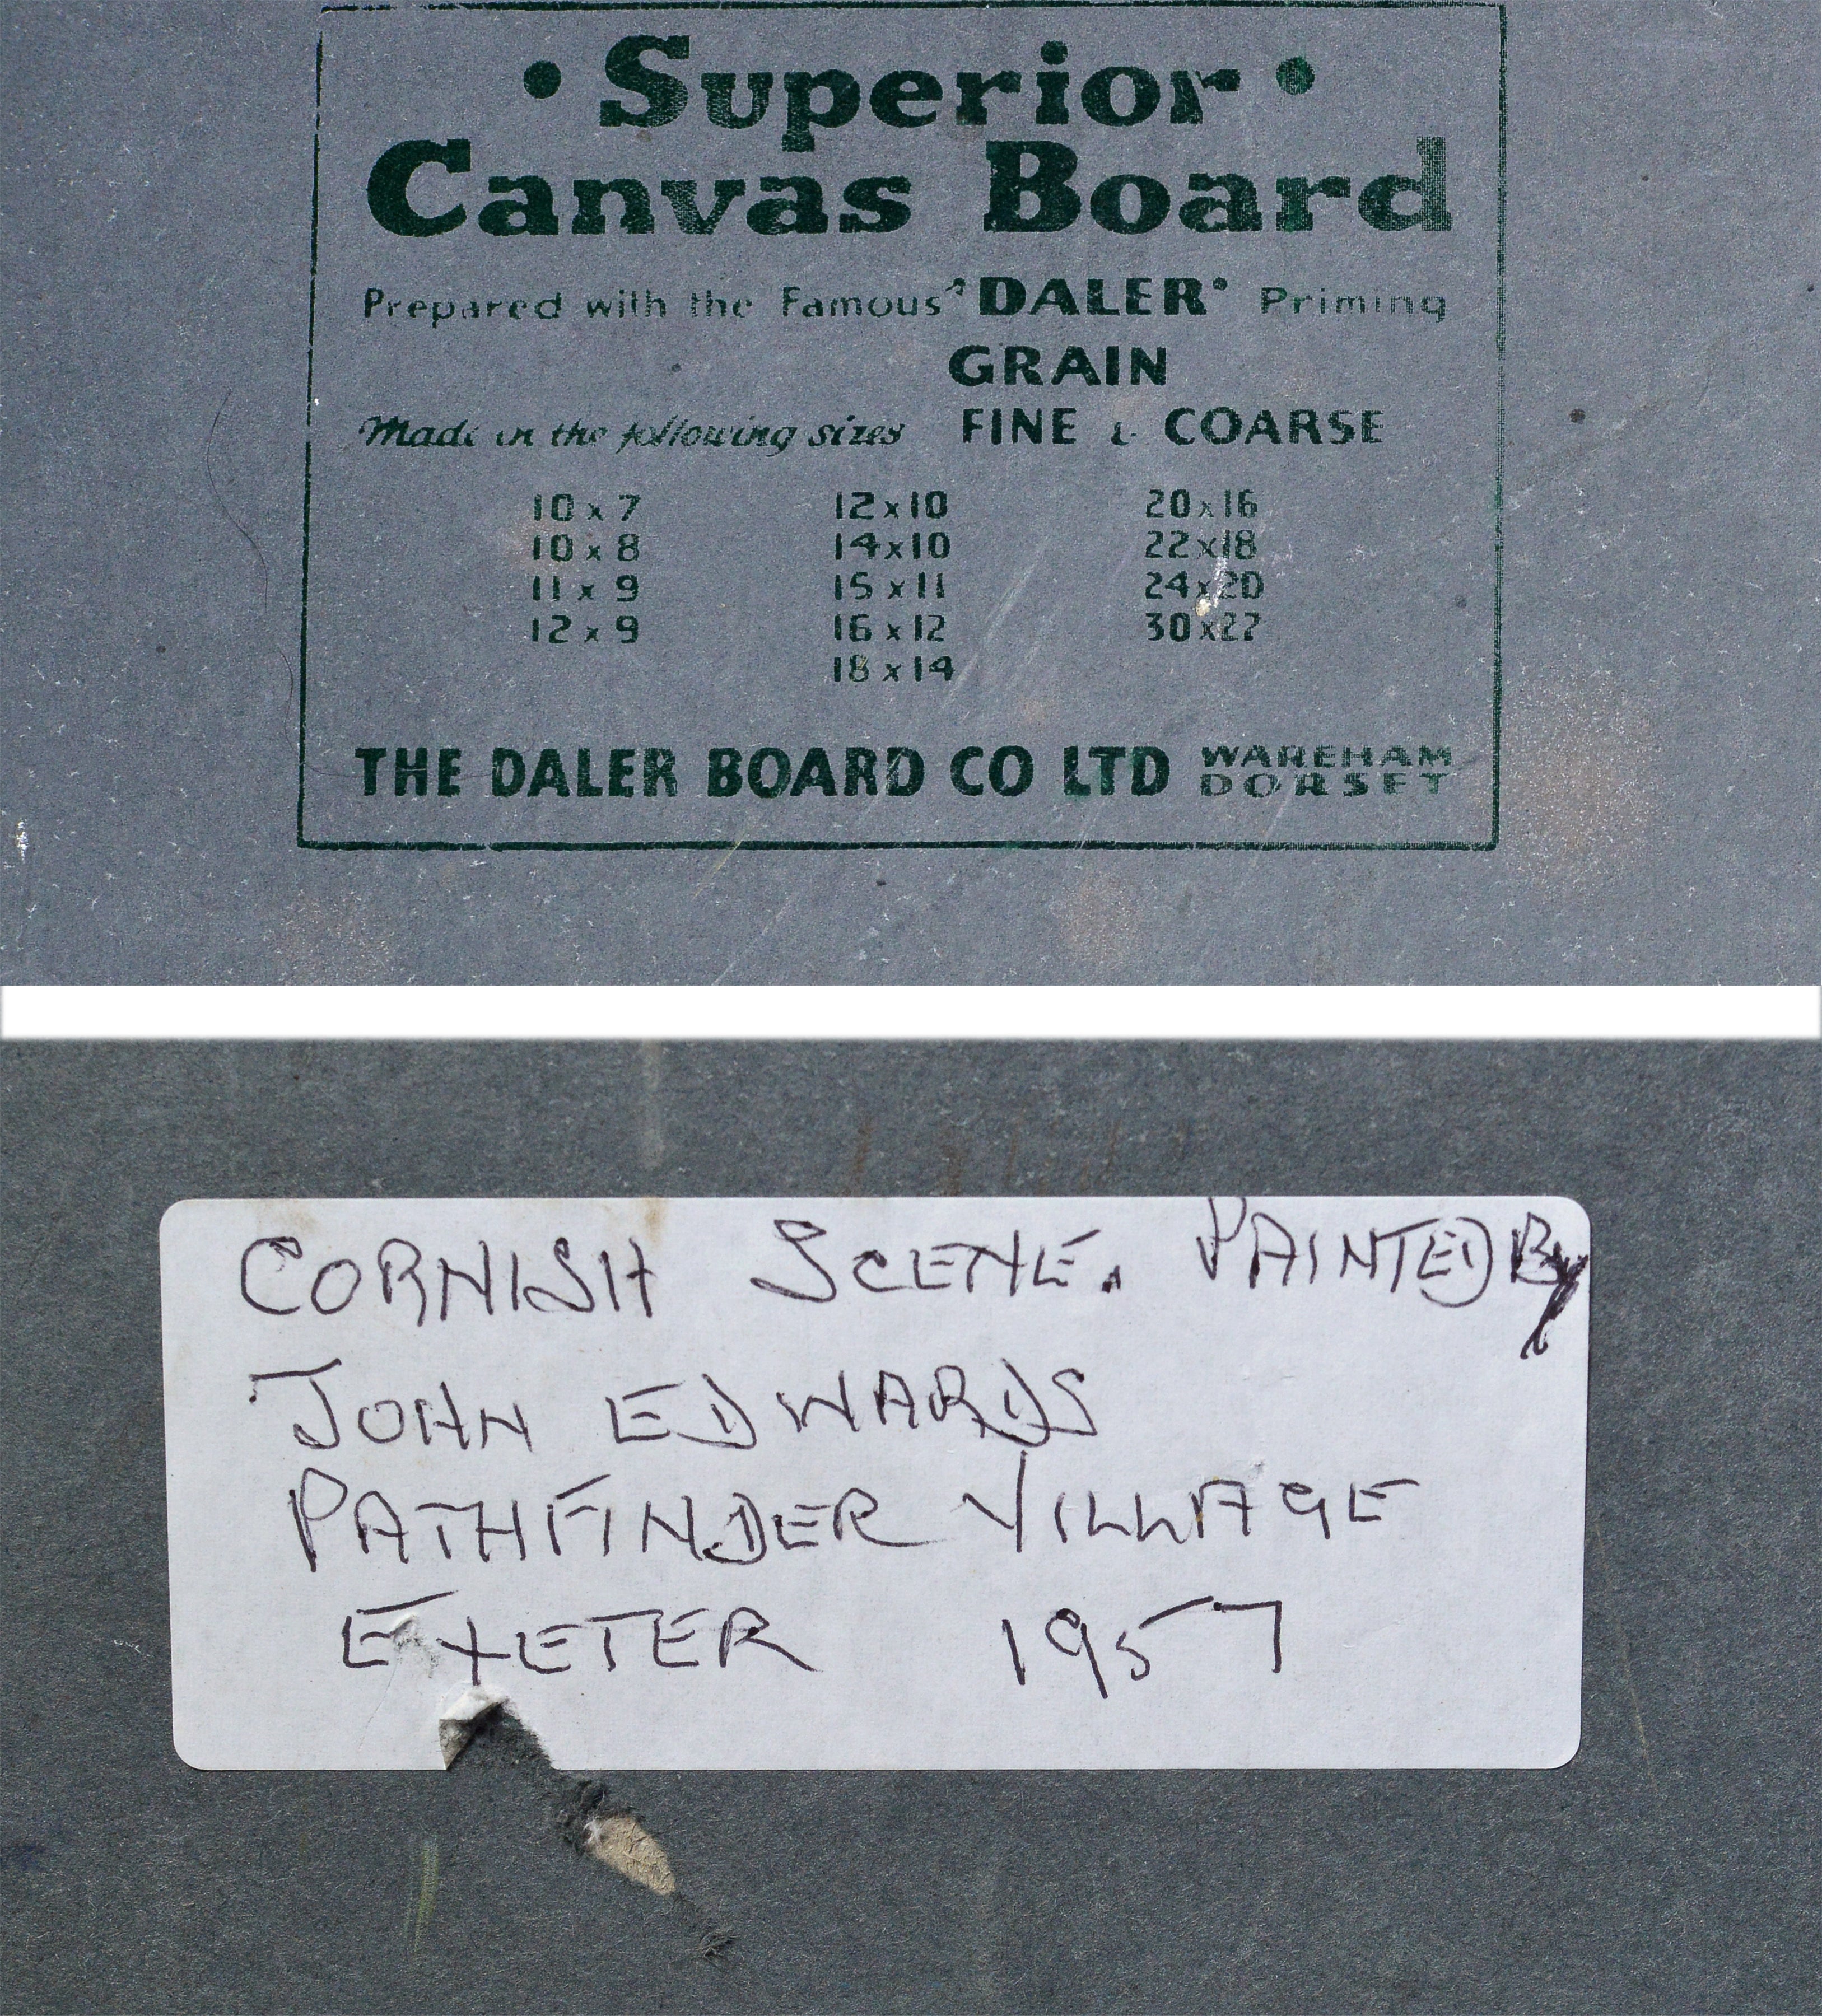 • Superior •
Canvas Board
Prepared with the Famous 'DALER' Priming
GRAIN
Made in the following sizes FINE & COARSE
10 x 7 12 x 10 20 x 16
10 x 8 14 x 10 22 x 18
11 x 9 15 x 11 24 x 20
12 x 9 16 x 12 30 x 22
18 x 14
THE DALER BOARD CO LTD WAREHAM
DORSET
CORNISH SCENE. PAINTED By
JOHN EDWARDS
PATHFINDER VILLAGE
EXETER 1957